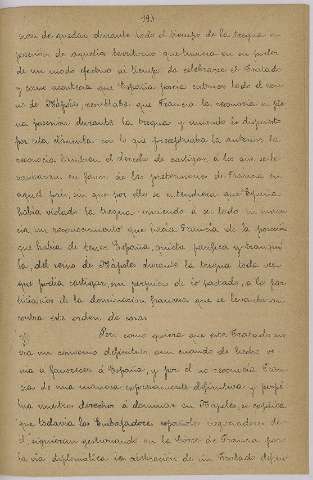 193
sion de quedar durante todo el tiempo de la tregua en
posesion de aquellos territorios que tuviera en su poder
de un modo efectivo al tiempo de celebrarse el Tratado
y como aconteciera que España poseia entonces todo el rei-
no de Nápoles resultaba que Francia la reconocia en ple-
na posesion durante la tregua y uniendo lo dispuesto
por esta cláusula con lo que preceptuaba la anterior la
reconocia tambien el derecho de castigar a los que se le-
vantaran en favor de las pretensiones de Francia en
aquel pais, sin que por ello se entendiera que España
habia violado la tregua viniendo á ser todo en
un reconocimiento que hacia Francia de la posesion
que habia de tener España, quieta pacifica y tranqui-
la, del reino de Nápoles durante la tregua toda vez
que podia castigar, sin perjuicio de lo pactado, a los par-
tidarios de la dominacion francesa que se levantaran
contra este orden de cosas
Pero como quiera que este Tratado no
era un convenio definitivo aun cuando de hecho ve-
nia a favorecer á España, y por él no reconocia Fran-
cia de una manera expresamente definitiva y perpé-
tua nuestro derecho a dominar en Nápoles, se explica
que todavia los Embajadores españoles
siguieran gestionando en la Corte de Francia por
la via diplomatica la celebracion de un Tratado defini-